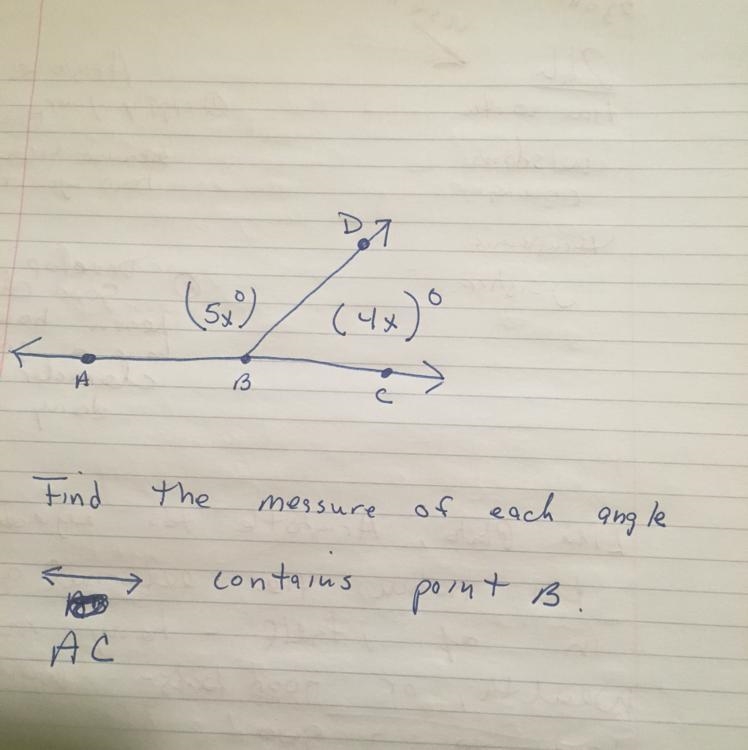 D
(5x°)
(4x)°
A
B
C
Find the messure of each angle
contains point B.
AC